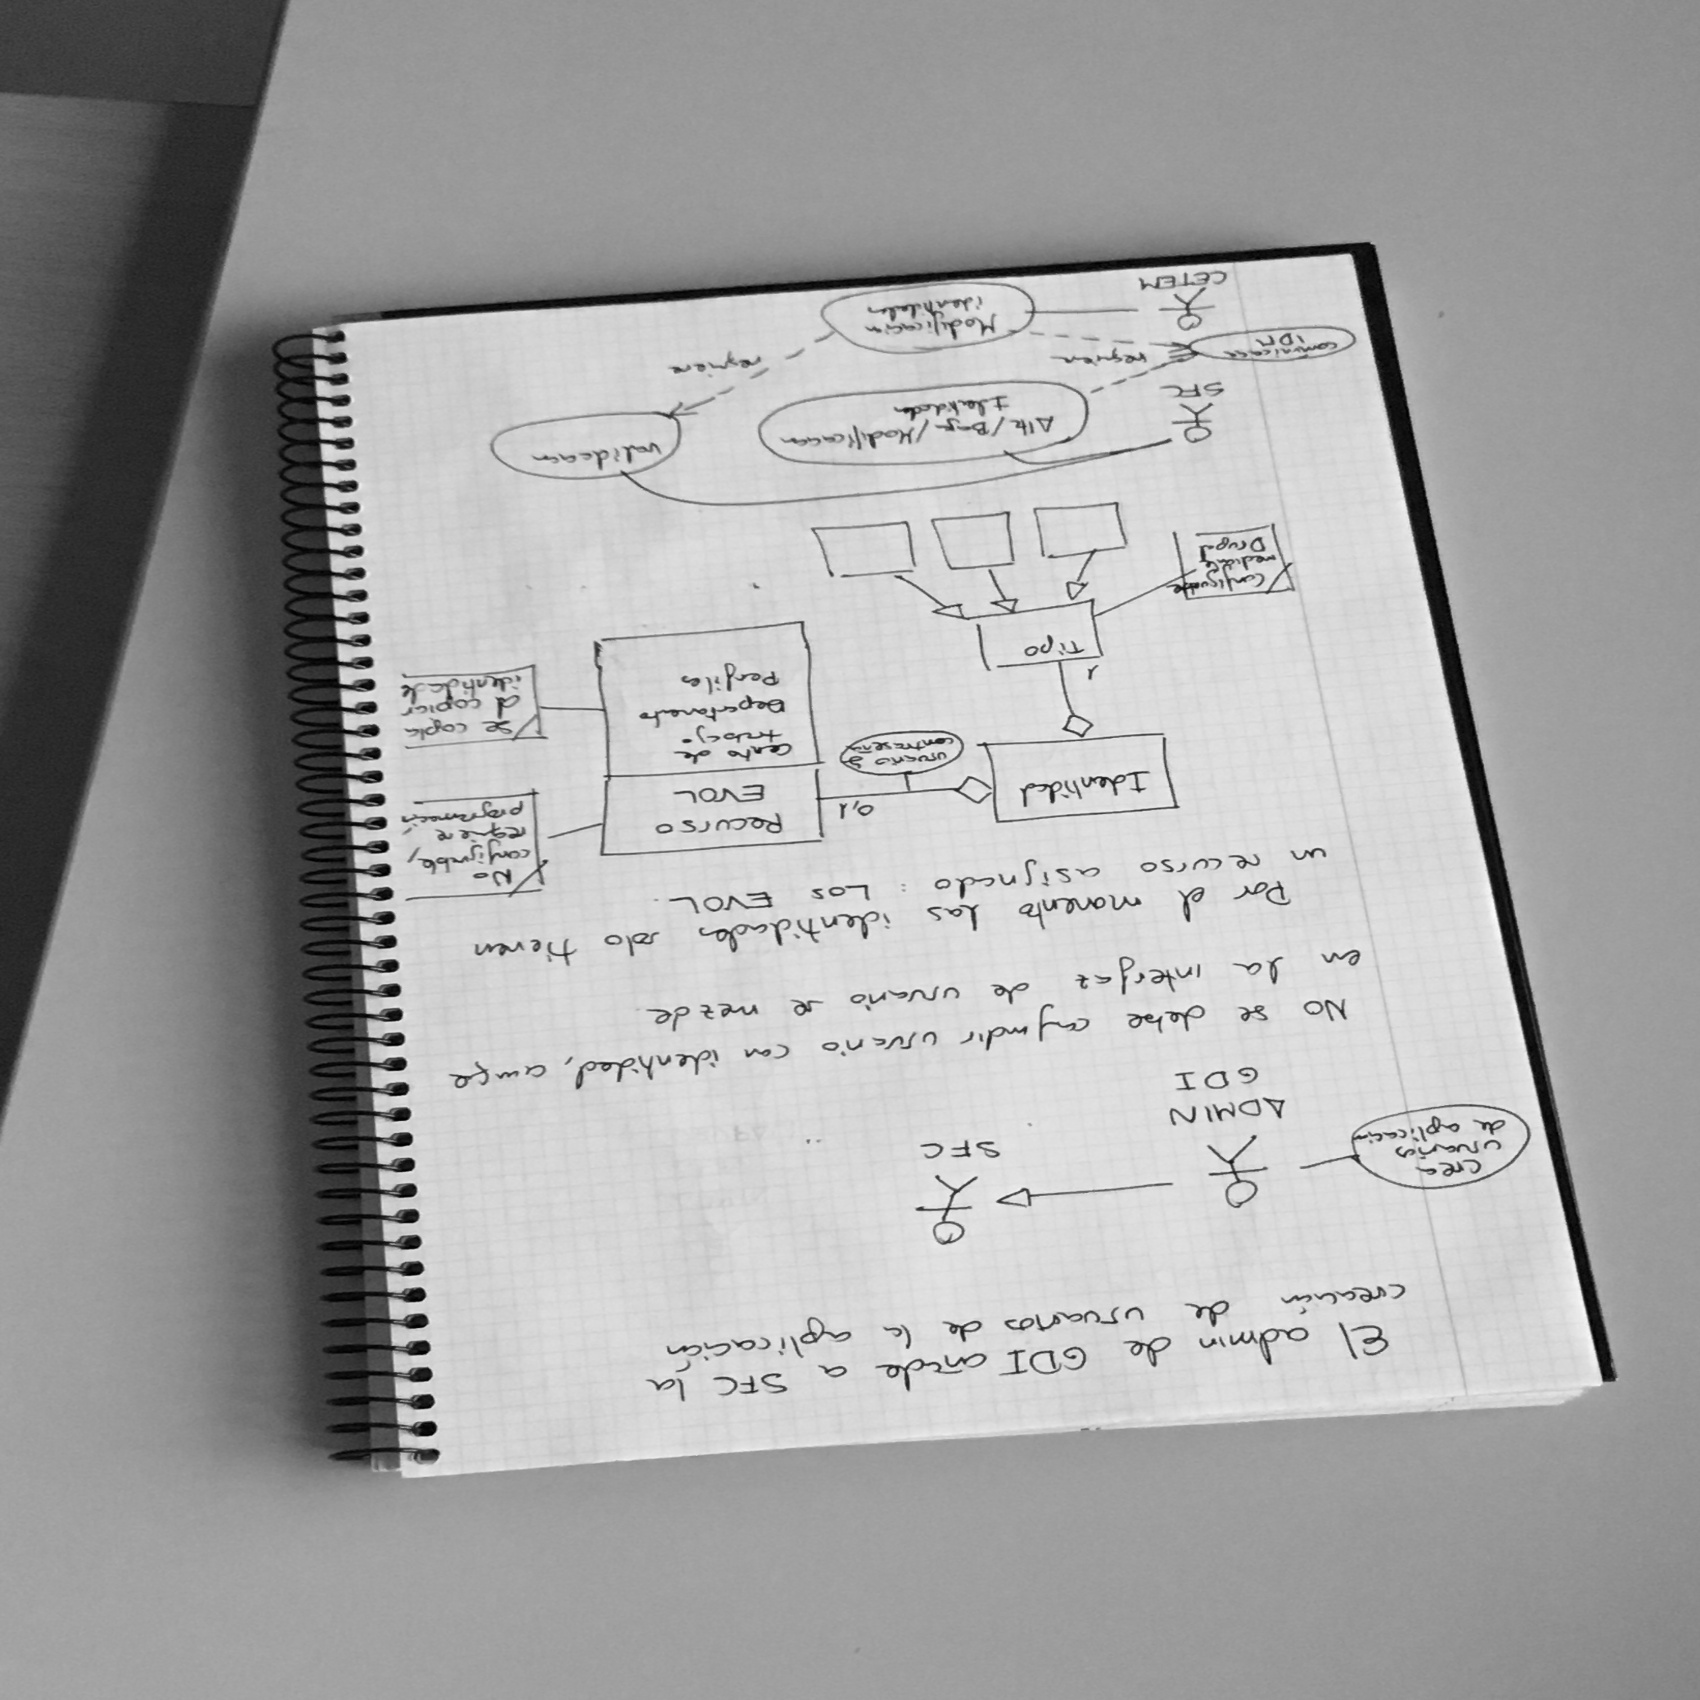 El admin de GDI añade a SFC la
creación de usuarios de la aplicación
crea
usuarios
de aplicación
ADMIN
GDI
SFC
No se debe confundir usuario con identidad, aunque
en la interfaz de usuario se mezcle.
Por el momento las identidades solo tienen
un recurso asignado: Los EVOL.
Identidad
usuario y
contraseña
0,1
RECURSO
EVOL
Centro de
trabajo
Departamento
Perfiles
No
configurable,
requiere
programación
Se copia
al copiar
identidade
1
Tipo
Configurable
mediante
Drupal
SFC
Validación
Alta/Baja/Modificación
Identidades
comunicace
IDM
requiere
requiere
Modificación
identidades
CETEM